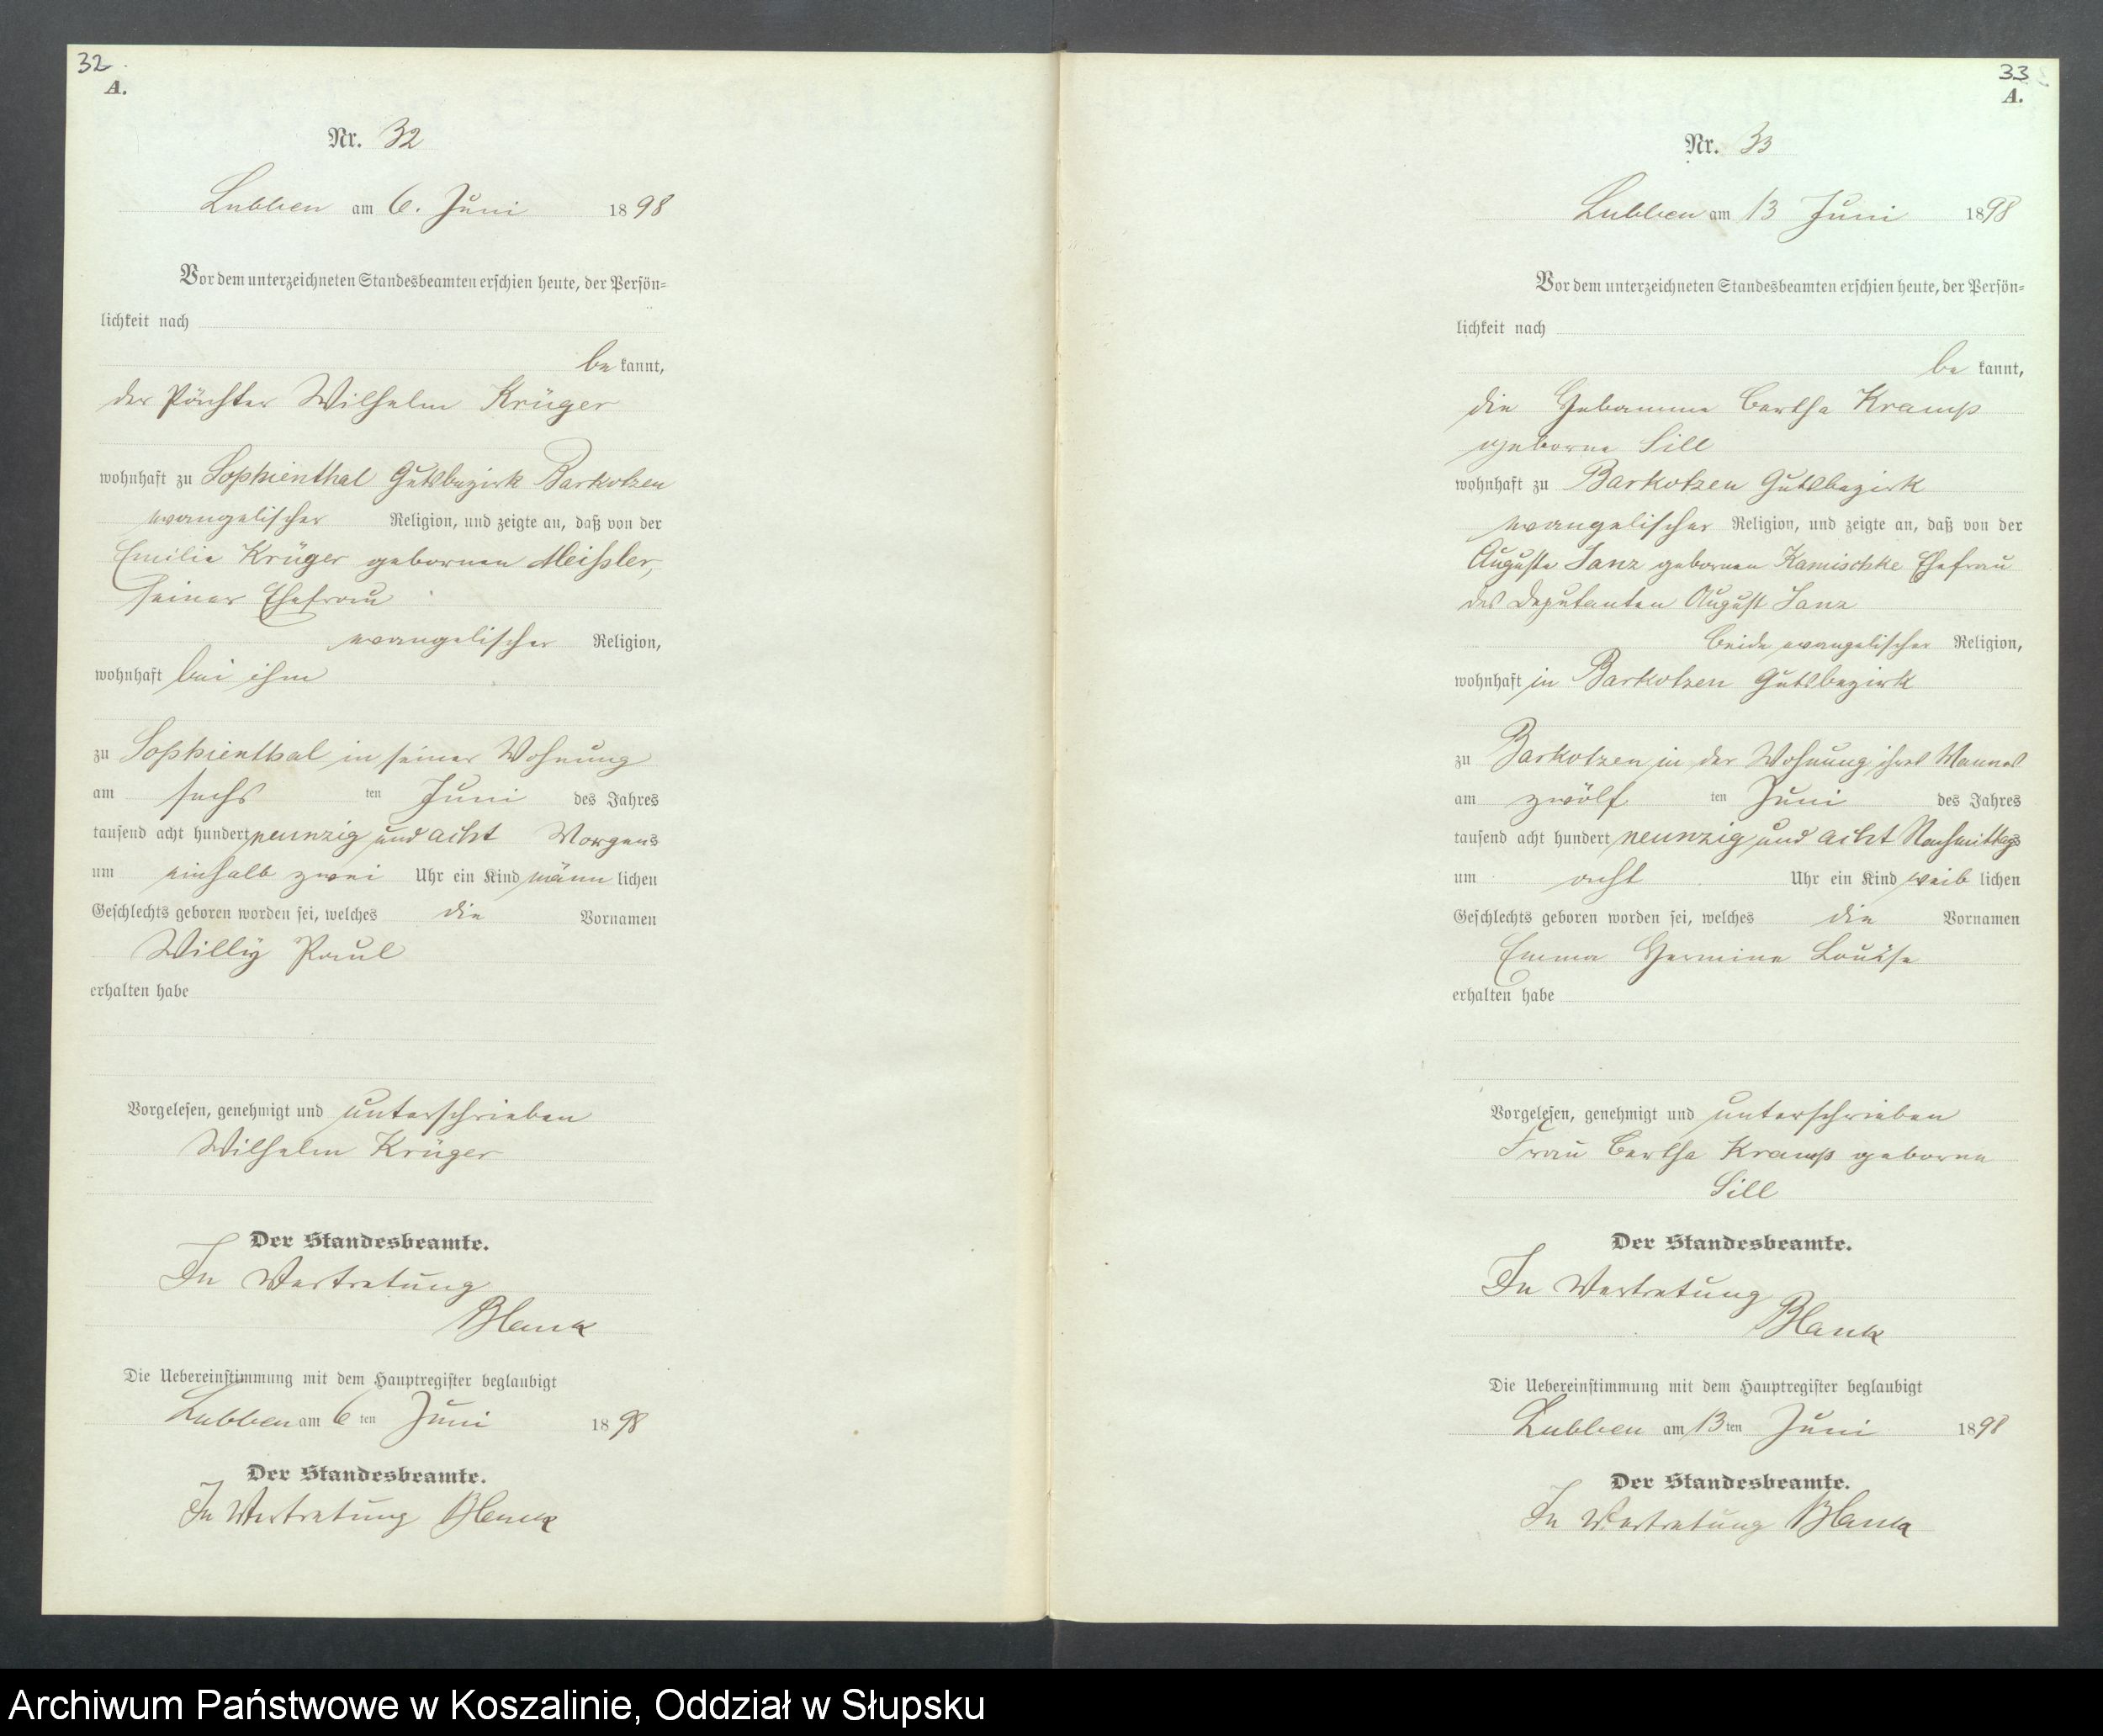 32
A.
Nr. 32
Lubben am 6. Juni 1898
Vor dem unterzeichneten Standesbeamten erschien heute, der Persön=
lichkeit nach
be kannt,
der Pächter Wilhelm Krüger
wohnhaft zu Sophienthal Gutsbezirk Barkotzen
evangelischer Religion, und zeigte an, daß von der
Emilie Krüger gebornen Meißler,
seiner Ehefrau
evangelischer Religion,
wohnhaft bei ihm
zu Sophienthal in seiner Wohnung
am sechs ten Juni des Jahres
tausend acht hundert neunzig und acht Morgens
um einhalb zwei Uhr ein Kind männ lichen
Geschlechts geboren worden sei, welches die Vornamen
Willy Paul
erhalten habe
Vorgelesen, genehmigt und unterschrieben
Wilhelm Krüger
Der Standesbeamte.
In Vertretung
Blank
Die Uebereinstimmung mit dem Hauptregister beglaubigt
Lubben am 6 ten Juni 1898
Der Standesbeamte.
In Vertretung Blank
33
A.
Nr. 33
Lubben am 13 Juni 1898
Vor dem unterzeichneten Standesbeamten erschien heute, der Persön=
lichkeit nach
be kannt,
die Hebamme Bertha Kramp
geborne Sill
wohnhaft zu Barkotzen Gutsbezirk
evangelischer Religion, und zeigte an, daß von der
Auguste Janz gebornen Kamischke Ehefrau
des Deputanten August Janz
beide evangelischer Religion,
wohnhaft in Barkotzen Gutsbezirk
zu Barkotzen in der Wohnung ihres Mannes
am zwölf ten Juni des Jahres
tausend acht hundert neunzig und acht Nachmittags
um acht Uhr ein Kind weib lichen
Geschlechts geboren worden sei, welches die Vornamen
Emma Hermine Louise
erhalten habe
Vorgelesen, genehmigt und unterschrieben
Frau Bertha Kramp geborne
Sill
Der Standesbeamte.
In Vertretung
Blank
Die Uebereinstimmung mit dem Hauptregister beglaubigt
Lubben am 13 ten Juni 1898
Der Standesbeamte.
In Vertretung Blank
Archiwum Państwowe w Koszalinie, Oddział w Słupsku